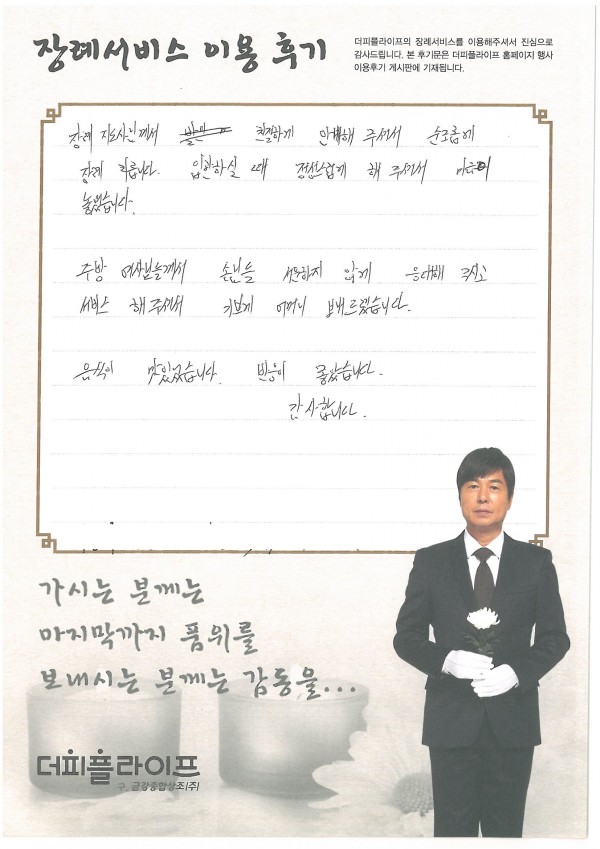 장례서비스 이용 후기
더피플라이프의 장례서비스를 이용해주셔서 진심으로
감사드립니다. 본 후기문은 더피플라이프 홈페이지 행사
이용후기 게시판에 기재됩니다.
장례 지도사님께서 친절하게 안내해 주셔서 순조롭게
장례 치릅니다. 입관하실 때 정성스럽게 해 주셔서 마음이
놓였습니다.
주방 여사님들께서 손님들 서운하지 않게 응대해 주시고
서비스 해 주셔서 기쁘게 어머니 보내드렸습니다.
음식이 맛있었습니다. 반응이 좋았습니다.
감사합니다.
가시는 분께는
마지막까지 품위를
보내시는 분께는 감동을...
더피플라이프
구. 금강종합상조(주)